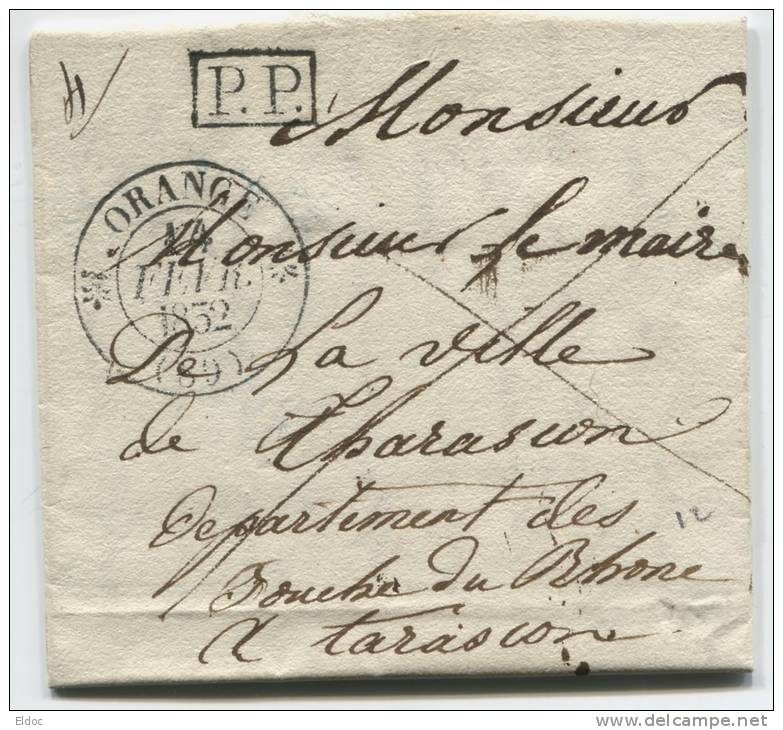 P.P.
Monsieur
ORANGE
FEVR.
1832
(89)
Monsieur le maire
De La ville
de Tharascon
departement des
Bouche du Rhone
a tarascon
12
Eldoc
delcampe.net